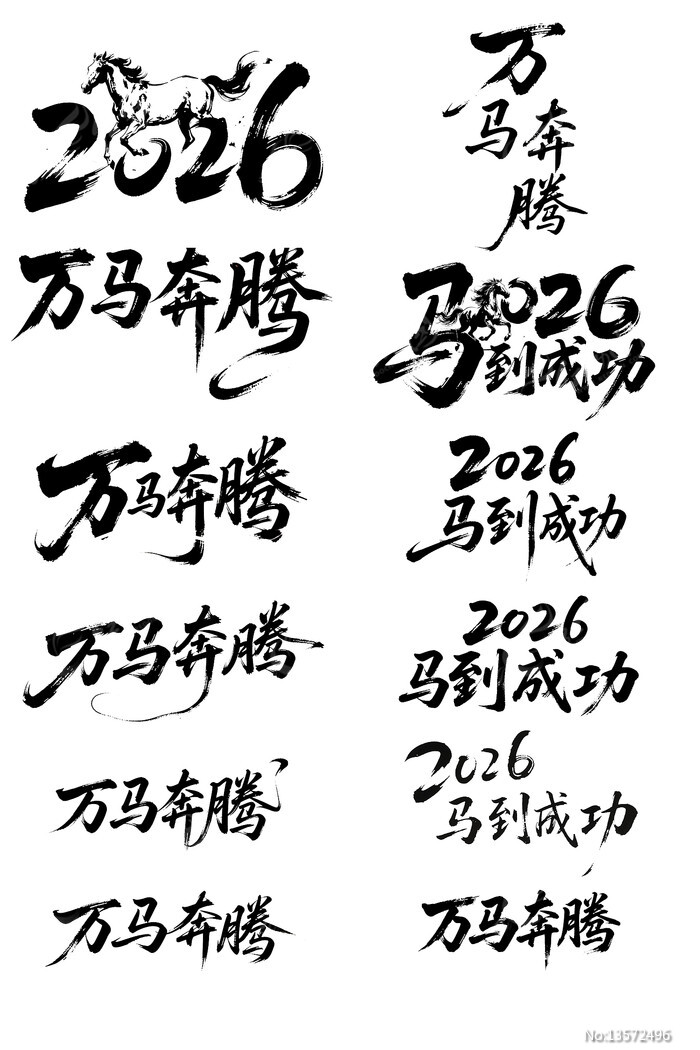 2026
万马奔腾
万马奔腾
万马奔腾
万马奔腾
万马奔腾
万
马奔
腾
马2026
到成功
2026
马到成功
2026
马到成功
2026
马到成功
万马奔腾
No:13572496